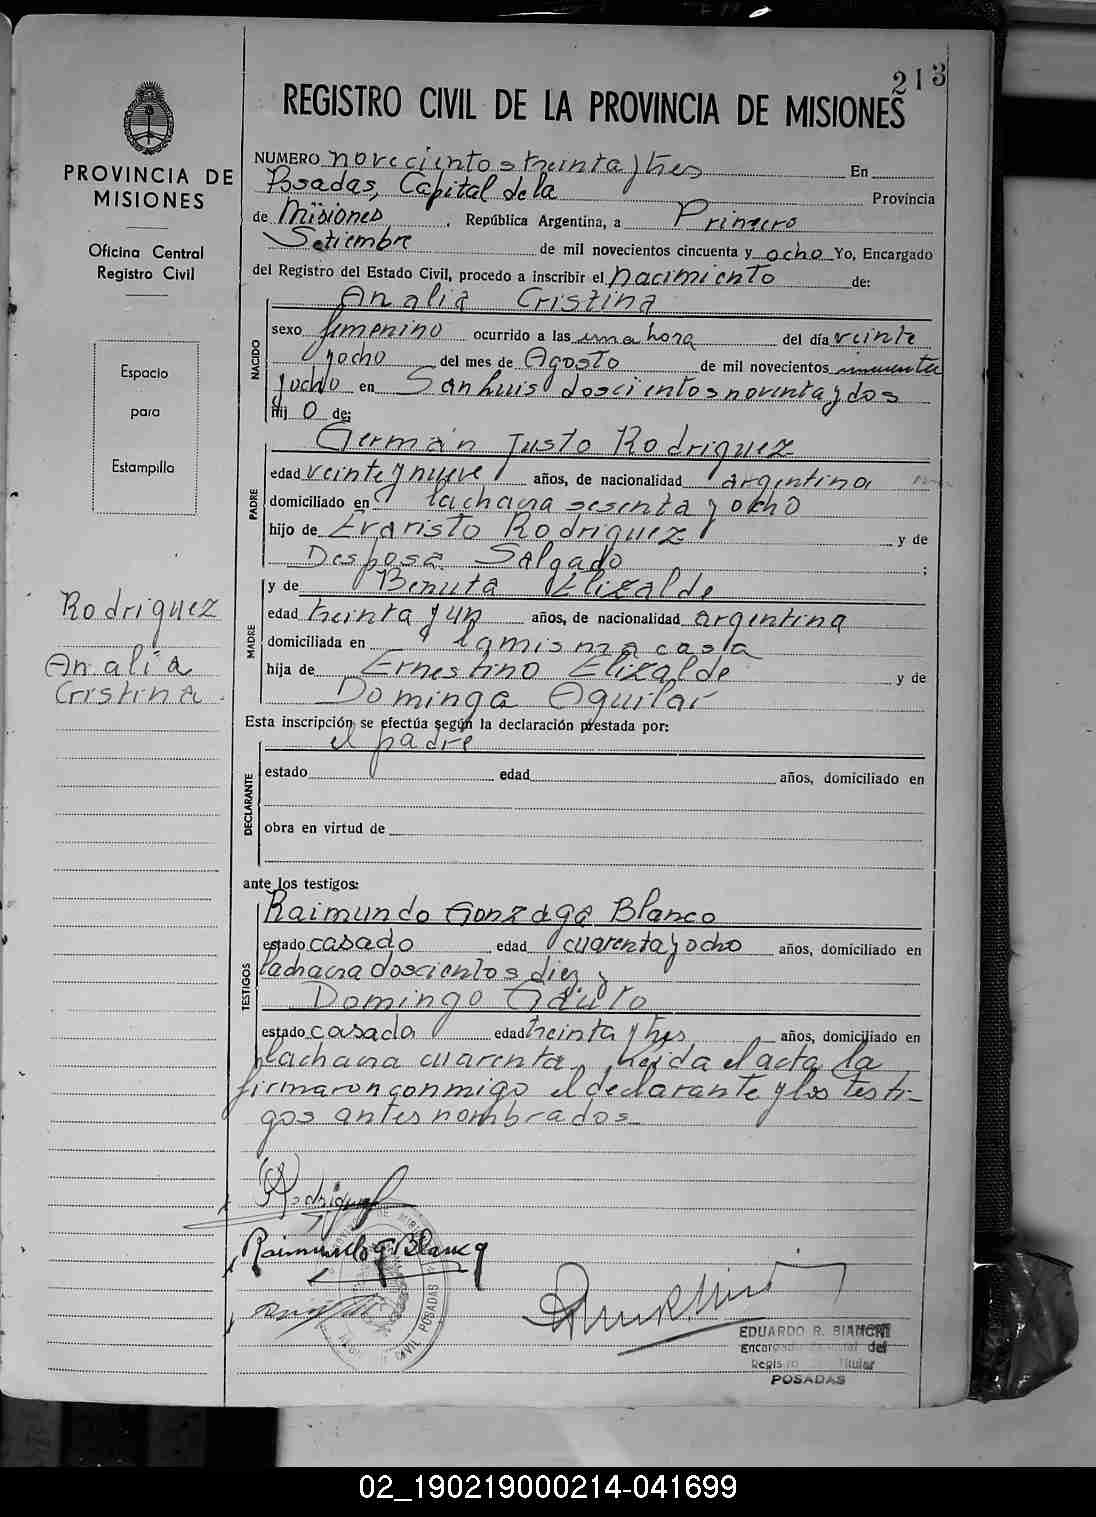 213
REGISTRO CIVIL DE LA PROVINCIA DE MISIONES
PROVINCIA DE
MISIONES
Oficina Central
Registro Civil
Espacio
para
Estampilla
Rodriguez
Analia
Cristina
NUMERO novecientos treinta y tres En
Posadas, Capital de la Provincia
de Misiones, República Argentina, a Primero
Setiembre de mil novecientos cincuenta y ocho Yo, Encargado
del Registro del Estado Civil, procedo a inscribir el nacimiento de:
Analia Cristina
NACIDO
sexo femenino ocurrido a las una hora del día veinte
yocho del mes de Agosto de mil novecientos cincuenta
yocho en San Luis doscientos noventa y dos
hij o de:
German Justo Rodriguez
PADRE
edad veinte y nueve años, de nacionalidad argentina
domiciliado en Lachana sesenta y ocho
hijo de Evaristo Rodriguez y de
Desposa Salgado ;
y de Benuta Elizalde
MADRE
edad treinta y un años, de nacionalidad argentina
domiciliada en la misma casa
hija de Ernestino Elizalde y de
Dominga Aguilar
Esta inscripción se efectúa según la declaración prestada por:
el padre
DECLARANTE
estado edad años, domiciliado en
obra en virtud de
ante los testigos:
TESTIGOS
Raimundo Gonzaga Blanco
estado casado edad cuarenta y ocho años, domiciliado en
Lachana doscientos diez y
Domingo
estado casada edad treinta y tres años, domiciliado en
Lachana cuarenta. Leida el acta la
firmaron conmigo el declarante y los testi-
gos antes nombrados
Rodriguez
Raimundo G Blanco
CIVIL POSADAS
EDUARDO R. BIANCHI
Encargado del
Registro Titular
POSADAS
02_190219000214-041699